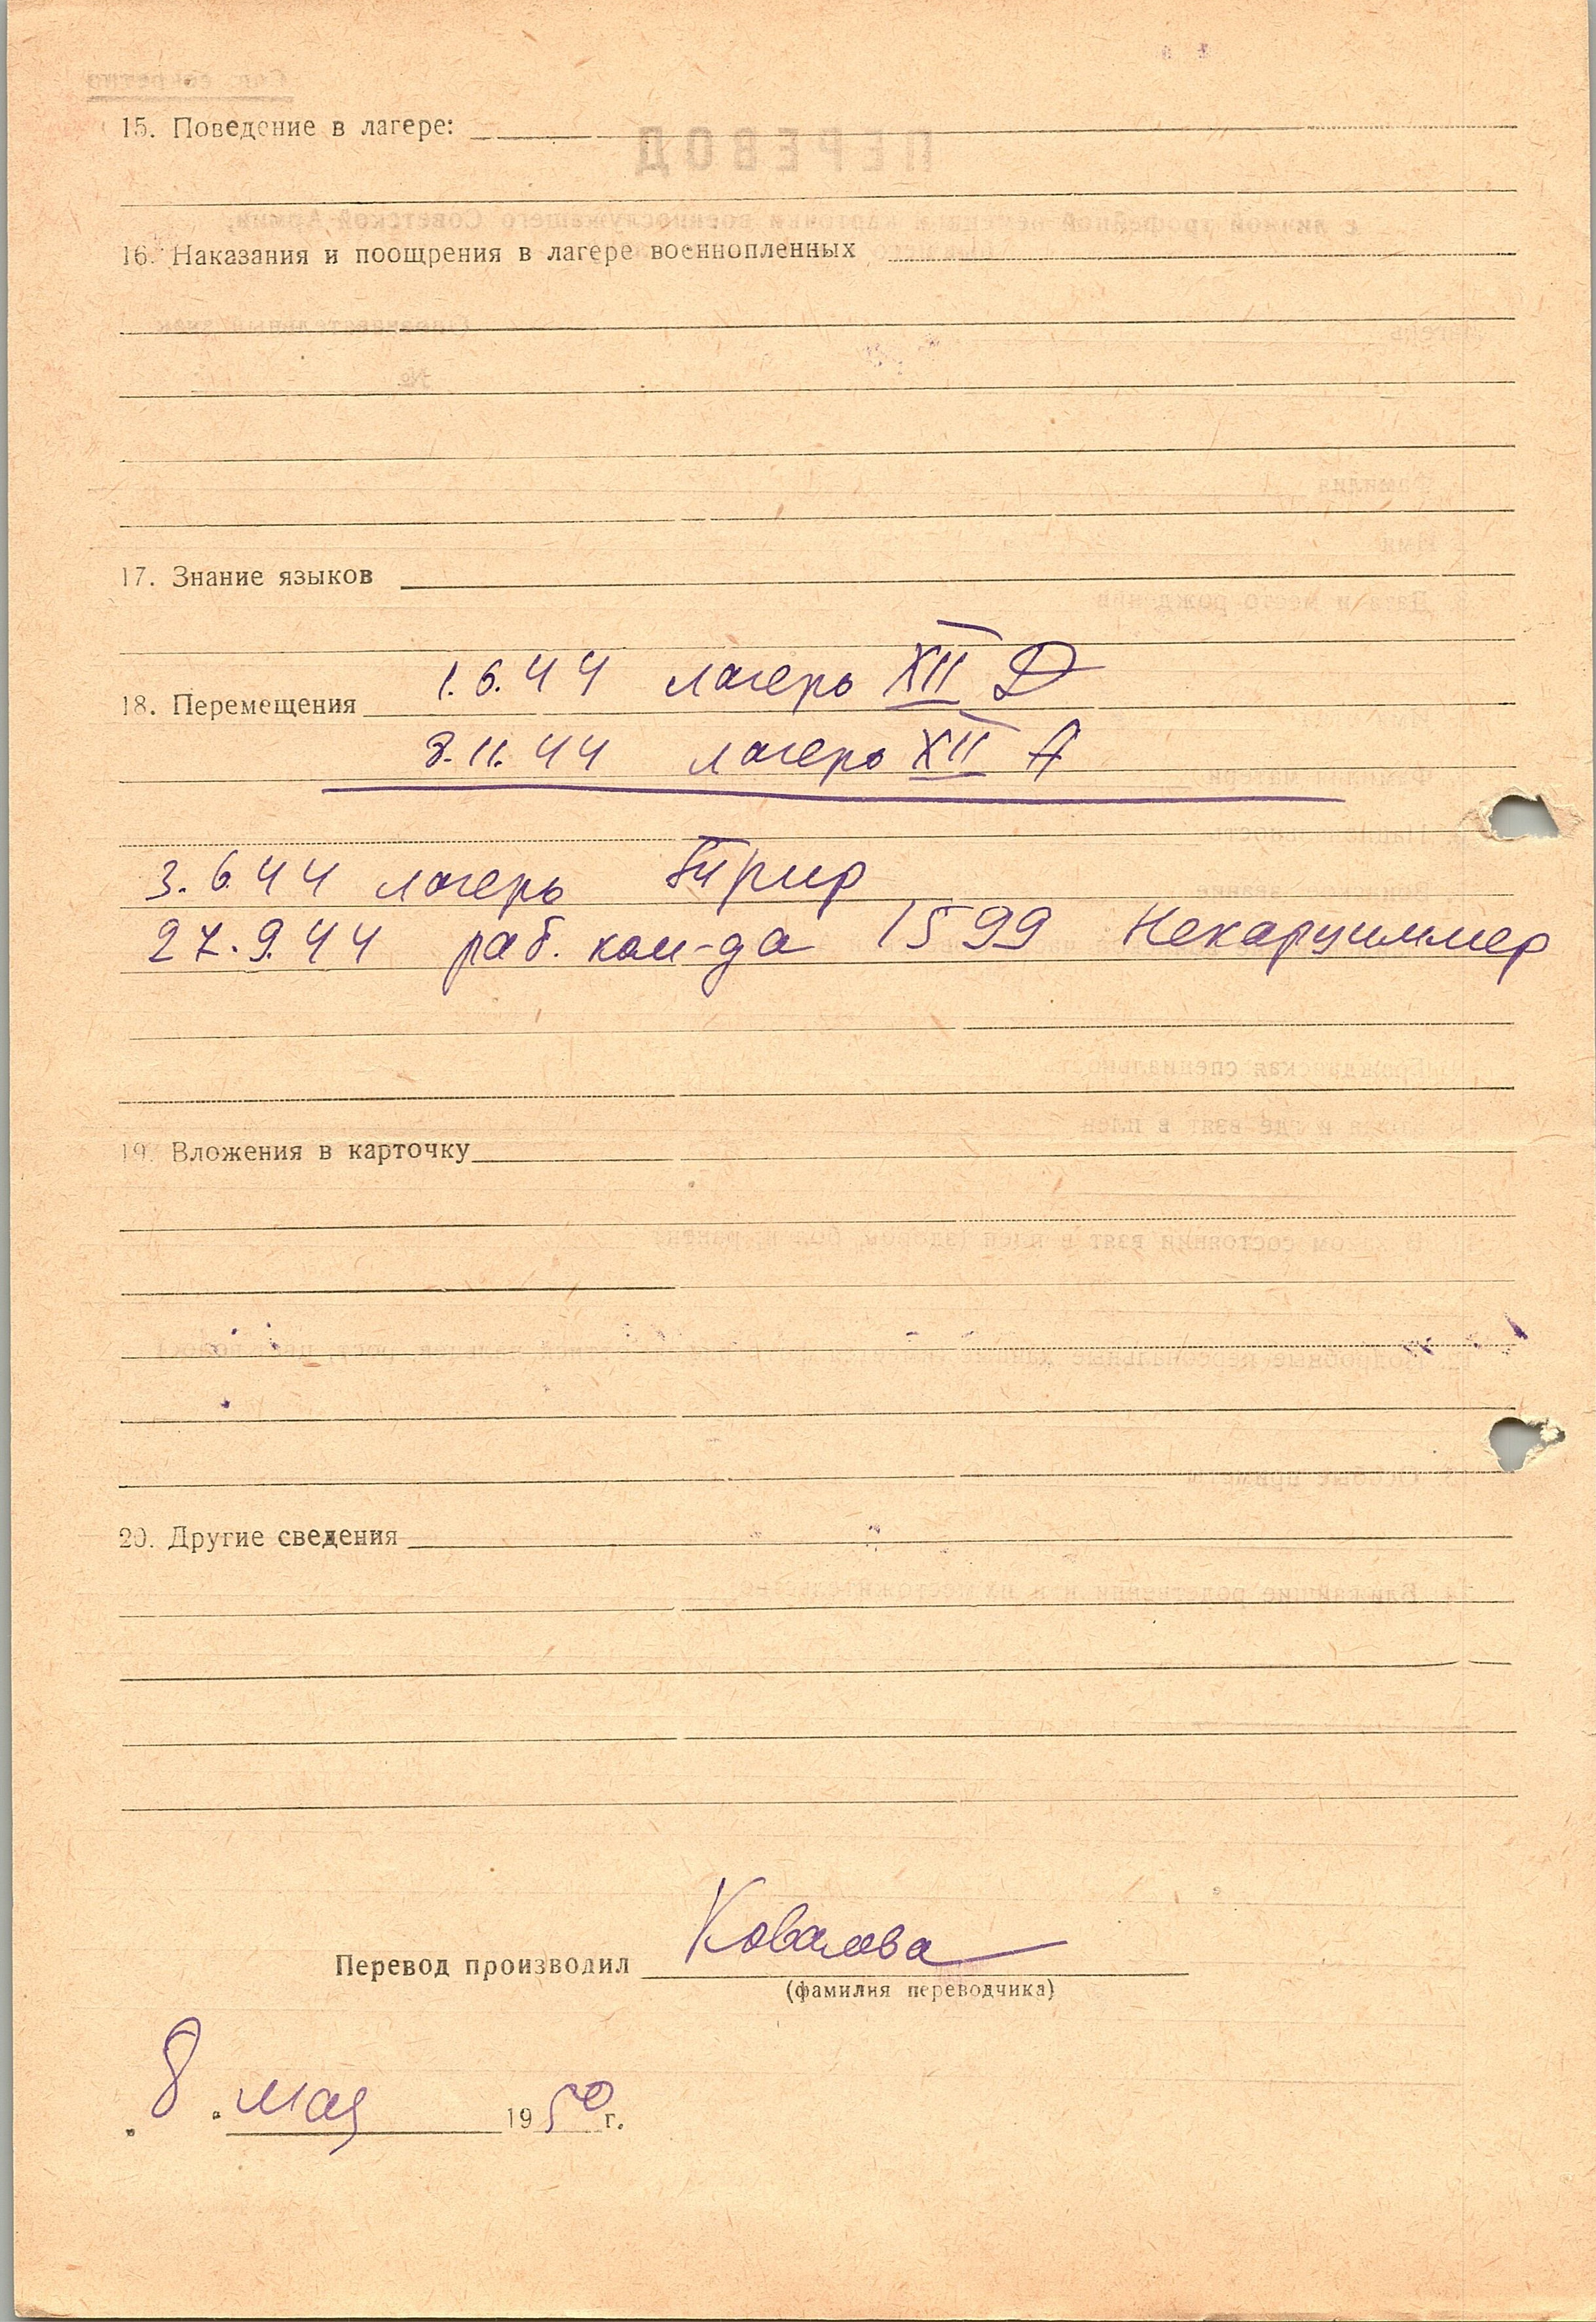 15. Поведение в лагере:
16. Наказания и поощрения в лагере военнопленных
17. Знание языков
1.6.44 лагерь XII D
18. Перемещения
8.11.44 лагерь XII A
3.6.44 лагерь Трир
27.9.44 раб. ком-да 1599 Некарциммер
19. Вложения в карточку
20. Другие сведения
Перевод производил Ковалева
(фамилия переводчика)
„8" мая 1950 г.